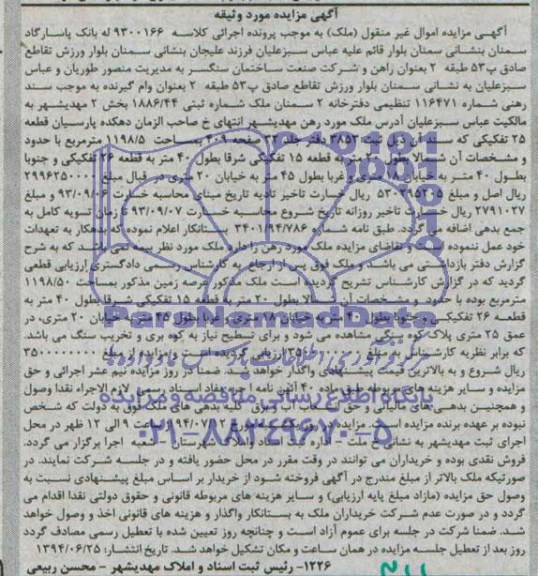 آگهی مزایده مورد وثیقه
آگهی مزایده اموال غیر منقول (ملک) به موجب پرونده اجرائی کلاسه ۹۳۰۰۱۶۶ له بانک پاسارگاد
سمنان بنشانی سمنان بلوار قائم علیه عباس سبزعلیان فرزند علیجان بنشانی سمنان بلوار ورزش تقاطع
صادق پ۵۳ طبقه ۲ بعنوان راهن و شرکت صنعت ساختمان سنگسر به مدیریت منصور طوریان و عباس
سبزعلیان به نشانی سمنان بلوار ورزش تقاطع صادق پ۵۳ طبقه ۲ بعنوان وام گیرنده به موجب سند
رهنی شماره ۱۱۶۴۷۱ تنظیمی دفترخانه ۲ سمنان ملک شماره ثبتی ۱۸۸۶/۴۴ بخش ۲ مهدیشهر به
مالکیت عباس سبزعلیان آدرس ملک مورد رهن مهدیشهر انتهای خ صاحب الزمان دهکده پارسیان قطعه
۲۵ تفکیکی که سند آن ذیل ثبت ۳۸۵۳ دفتر جلد ۳۳ صفحه ۴۰۹ بمساحت ۱۱۹۸/۵ مترمربع با حدود
و مشخصات آن شمالا بطول ۲۰ متر به قطعه ۱۵ تفکیکی شرقا بطول ۴۰ متر به قطعه ۲۶ تفکیکی و جنوبا
بطول ۴۰ متر به خیابان متری و غربا بطول ۴۵ متر به خیابان ۲۰ متری در قبال مبلغ ۲۹۹۶۲۵۰۰۰۰
ریال اصل و مبلغ ۵۳۰۲۹۵۲۰۵ ریال خسارت تاخیر تادیه تاریخ مبنای محاسبه خسارت ۹۳/۰۹/۰۶ و مبلغ
۲۷۹۱۰۲۷ ریال خسارت تاخیر روزانه تاریخ شروع محاسبه خسارت ۹۳/۰۹/۰۷ تا زمان تسویه کامل به
جمع بدهی اضافه می گردد. طبق نامه شماره ۳۴۰۱/۹۴/۷۸۶ بستانکار اعلام نموده که بدهکار به تعهدات
خود عمل ننموده و تقاضای مزایده ملک مورد رهن را دارد ملک مورد نظر بیمه نمی باشد که به شرح
گزارش دفتر بازداشتی می باشد و ملک فوق پس از ارجاع به کارشناس رسمی دادگستری ارزیابی قطعی
گردید که در گزارش کارشناس تشریح گردیده است ملک مذکور عرصه زمین مذکور بمساحت ۱۱۹۸/۵۰
مترمربع بوده با حدود و مشخصات آن شمالا بطول ۲۰ متر به قطعه ۱۵ تفکیکی شرقا بطول ۴۰ متر به
قطعه ۲۶ تفکیکی و جنوبا بطول ۴۰ متر به خیابان متری و غربا بطول ۴۵ متر به خیابان ۲۰ متری، در
عمق ۲۵ متری پلاک کوه سنگی مشاهده می شود و برای تسطیح نیاز به کوه بری و تخریب سنگ می باشد.
که برابر نظریه کارشناس به مبلغ ارزیابی گردیده است و از مبلغ ۳۵۰۰۰۰۰۰۰۰
ریال شروع و به بالاترین قیمت پیشنهادی واگذار خواهد شد. ضمنا در روز مزایده نیم عشر اجرائی و حق
مزایده و سایر هزینه های مربوطه طبق ماده ۴۰ آئین نامه اجرا مفاد اسناد رسمی لازم الاجراء نقدا وصول
و همچنین بدهی های مالیاتی و حق انشعاب آب و برق کلیه بدهی های ملک فوق به دولت که شخص
نبوده بر عهده برنده مزایده است. مزایده روز ۹۴/۰۷ ساعت ۹ الی ۱۲ ظهر در محل
اجرای ثبت مهدیشهر به نشانی خ ملت اداره ثبت اسناد و املاک شهرستان شعبه اجرا برگزار می گردد.
فروش نقدی بوده و خریداران می توانند در وقت مقرر در محل حضور یافته و در جلسه شرکت نمایند. در
صورتیکه ملک بالاتر از مبلغ مندرج در آگهی فروخته شود از خریدار بر اساس مبلغ پیشنهادی نسبت به
وصول حق مزایده (مازاد مبلغ پایه ارزیابی) و سایر هزینه های مربوطه قانونی و حقوق دولتی نقدا اقدام می
گردد و در صورت عدم شرکت خریداران ملک به بستانکار واگذار و هزینه های قانونی اخذ و وصول خواهد
شد. ضمنا شرکت در جلسه برای عموم آزاد است و چنانچه روز تعیین شده با تعطیل رسمی مصادف گردد
روز بعد از تعطیل جلسه مزایده در همان ساعت و مکان تشکیل خواهد شد. تاریخ انتشار: ۱۳۹۴/۰۶/۲۵
۱۲۲۶- رئیس ثبت اسناد و املاک مهدیشهر - محسن ربیعی
ParsNamadData
پایگاه اطلاع رسانی مناقصه و مزایده
۰۲۱-۸۸۳۴۹۶۷۰-۵